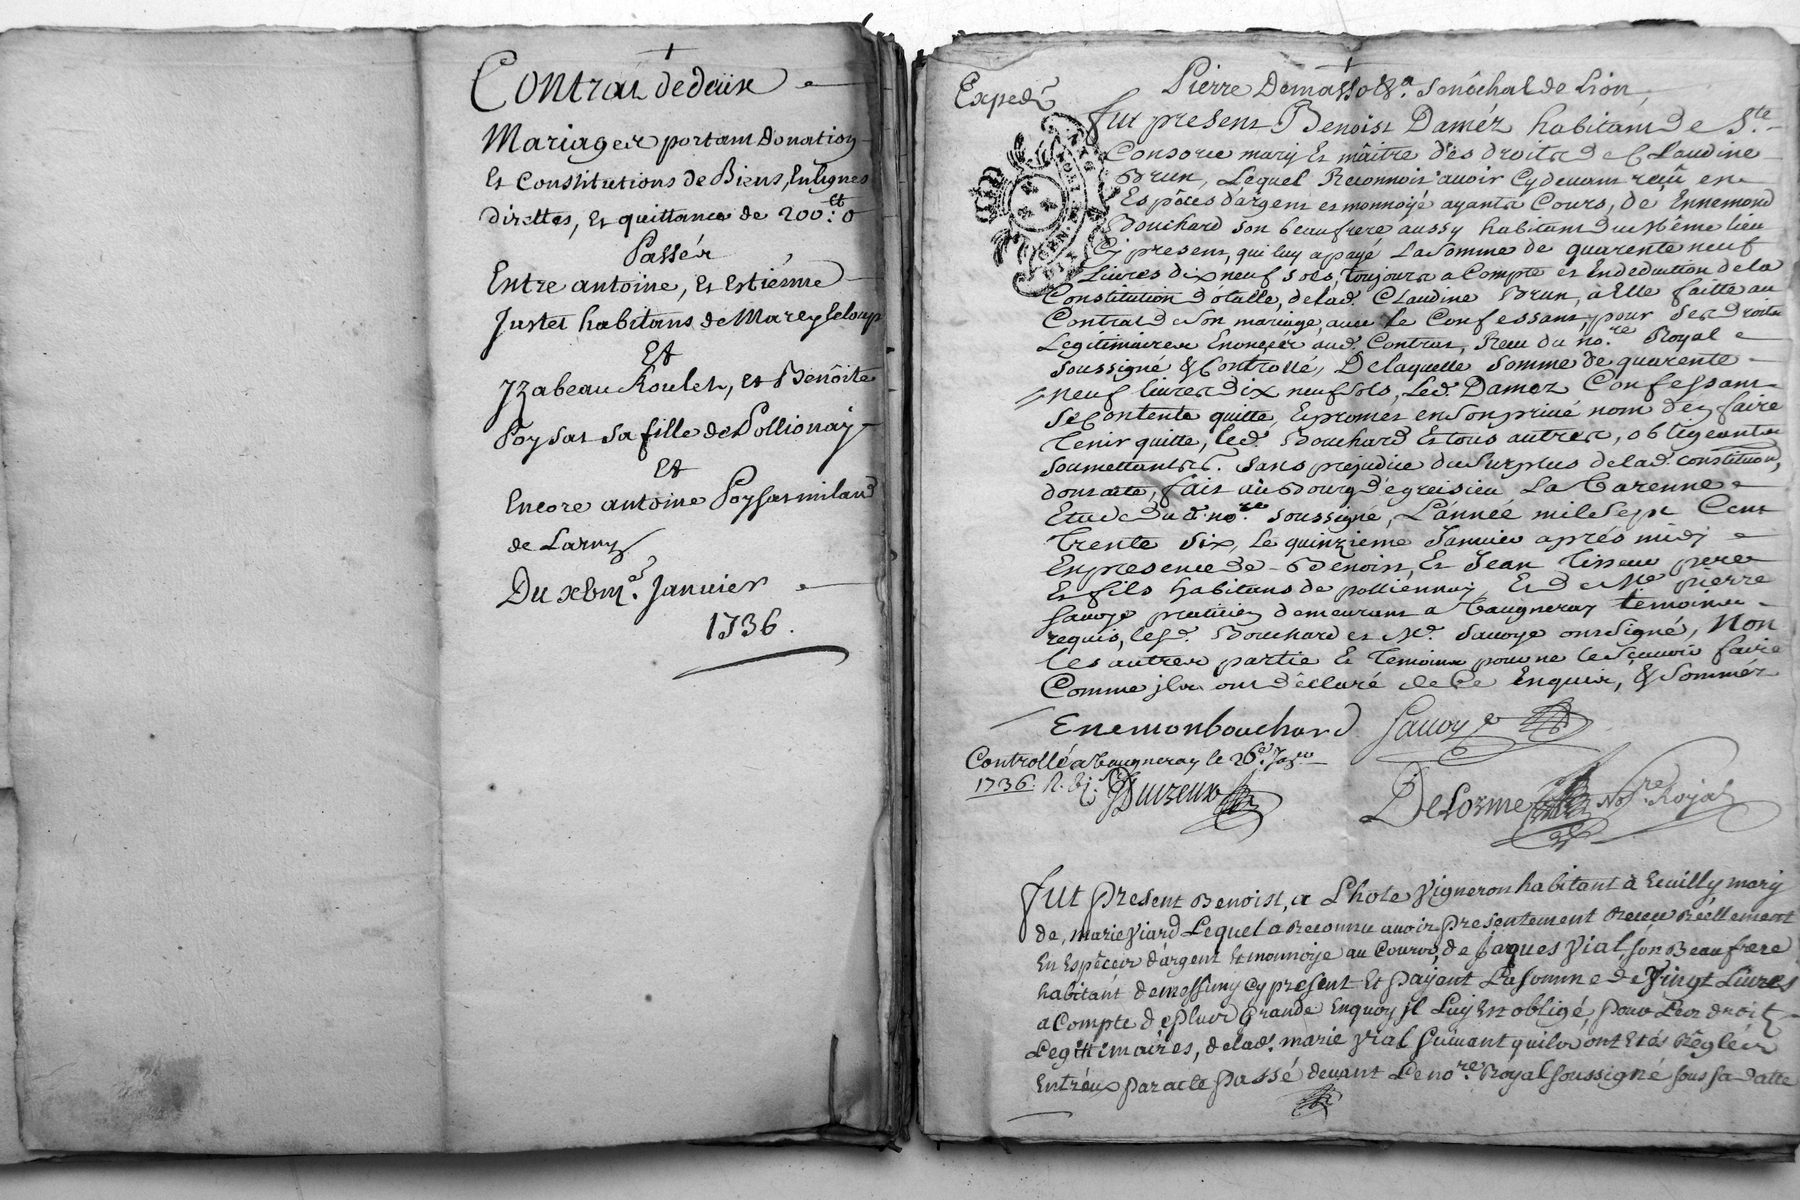 Contrat de deux
Mariages portant donation
Et Constitutions de Biens, En Lignes
direttes, Et quittance de 200:lt 0
Passés
Entre antoine, Et Estiénne
Justet habitans de Mareyseloup
Et
Jzabeau Roulet, et Benôite
Poysat sa fille de Pollionay
Et
Encore antoine Poysat milaud
de Larny
Du xbme. Janvier
1736.
Expedé
Pierre Demasso &a. Senêchal de Lion
fut present Benoist Daméz habitant de Ste
Consorce mary Et mâitre dès droits de Claudine
Brun, Lequel Reconnoit avoir Cydevant reçû en
Espéces dargent et monnoye ayants Cours, de Ennemond
Bouchard son beaufrere aussy habitant du Même lieu
Cy present, qui luy a payé La somme de quarente neuf
Livres dix neuf sols, toujours a Compte et En deduction de la
Constitution dotalle, de lad. Claudine Brun, a Elle faitte au
Contrat de son mariage, avec le Confessant, pour ses droits
Legitimaires Enoncés aud. Contrat, Receu du nore. Royal
soussigné & Controllé, De laquelle somme de quarente
neuf livres dix neuf sols, Led. Damez Confessant
se Contente quitte, Et promet en son privé nom dêz faire
tenir quitte, led. Bouchard Et tous autres, obligeants
soumettants &. sans prejudice du surplus de lad. constitution,
dont acte, fait au Bourg d'égreisieu La Varenne
Etude dud. nore. soussigné, L'année mil Sept Cent
trente six, le quinzieme Janvier aprés midi
En presence de Benoist, Et Jean Tisseur pere
Et fils habitans de polliennay, Et de Me. pierre
savoye praticien demeurant a Vaugneray temoins
requis, lesd. Bouchard et Me. Savoye ont signé, Non
les autres partie Et temoins pour ne le sçavoir faire
Comme ils ont déclaré de Ce Enquis, & sommés
Enemonbouchard Savoye
Controllé a Vaugneray le 26e. Janer
1736. R.
DeLorme Nore Royal
fut present Benoist, a L'hote Vigneron habitant à Ecuilly mary
de, marie Viard Lequel a Reconnu avoir presentement Receu Reéllement
En Espêces dargent Et monnoye au Cours, de Jaques Vial, son Beau frere
habitant de messimy cy present Et payant La somme de Vingt Livres
a Compte de plus Grande En quoy il Luy Est obligé pour Les droits
Legittimaires, de lad. marie Vial suivant quils ont Etés Reglés
Entréux par acte passé devant Le nore. Royal soussigné sous sa datte